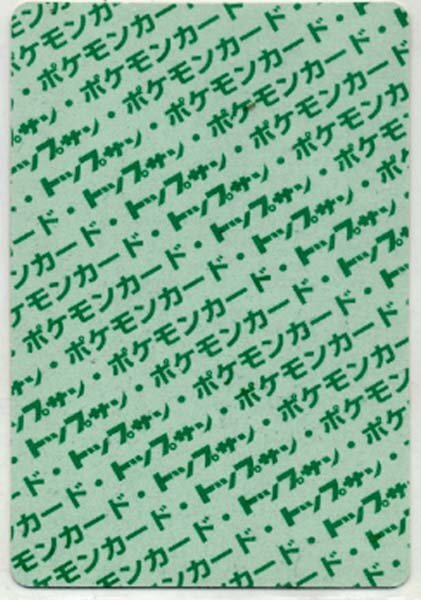 ケモン
ポケモンカー
プサン・ポケモンカード
トップサン・ポケモンカード・
ド・トップサン・ポケモンカード・
カード・トップサン・ポケモンカード・
ポケモンカード・トップサン・ポケモンカード
・ポケモンカード・トップサン・ポケモンカ
サン・ポケモンカード・トップサン・ポケモ
トップサン・ポケモンカード・トップサン・ポケ
ド・トップサン・ポケモンカード・トップサン
カード・トップサン・ポケモンカード・トッ
モンカード・トップサン・ポケモンカード
モンカード・トップサン・ポケモン
ンカード・トップサン・ポケ
カード・トップサン・
ード・トップサン